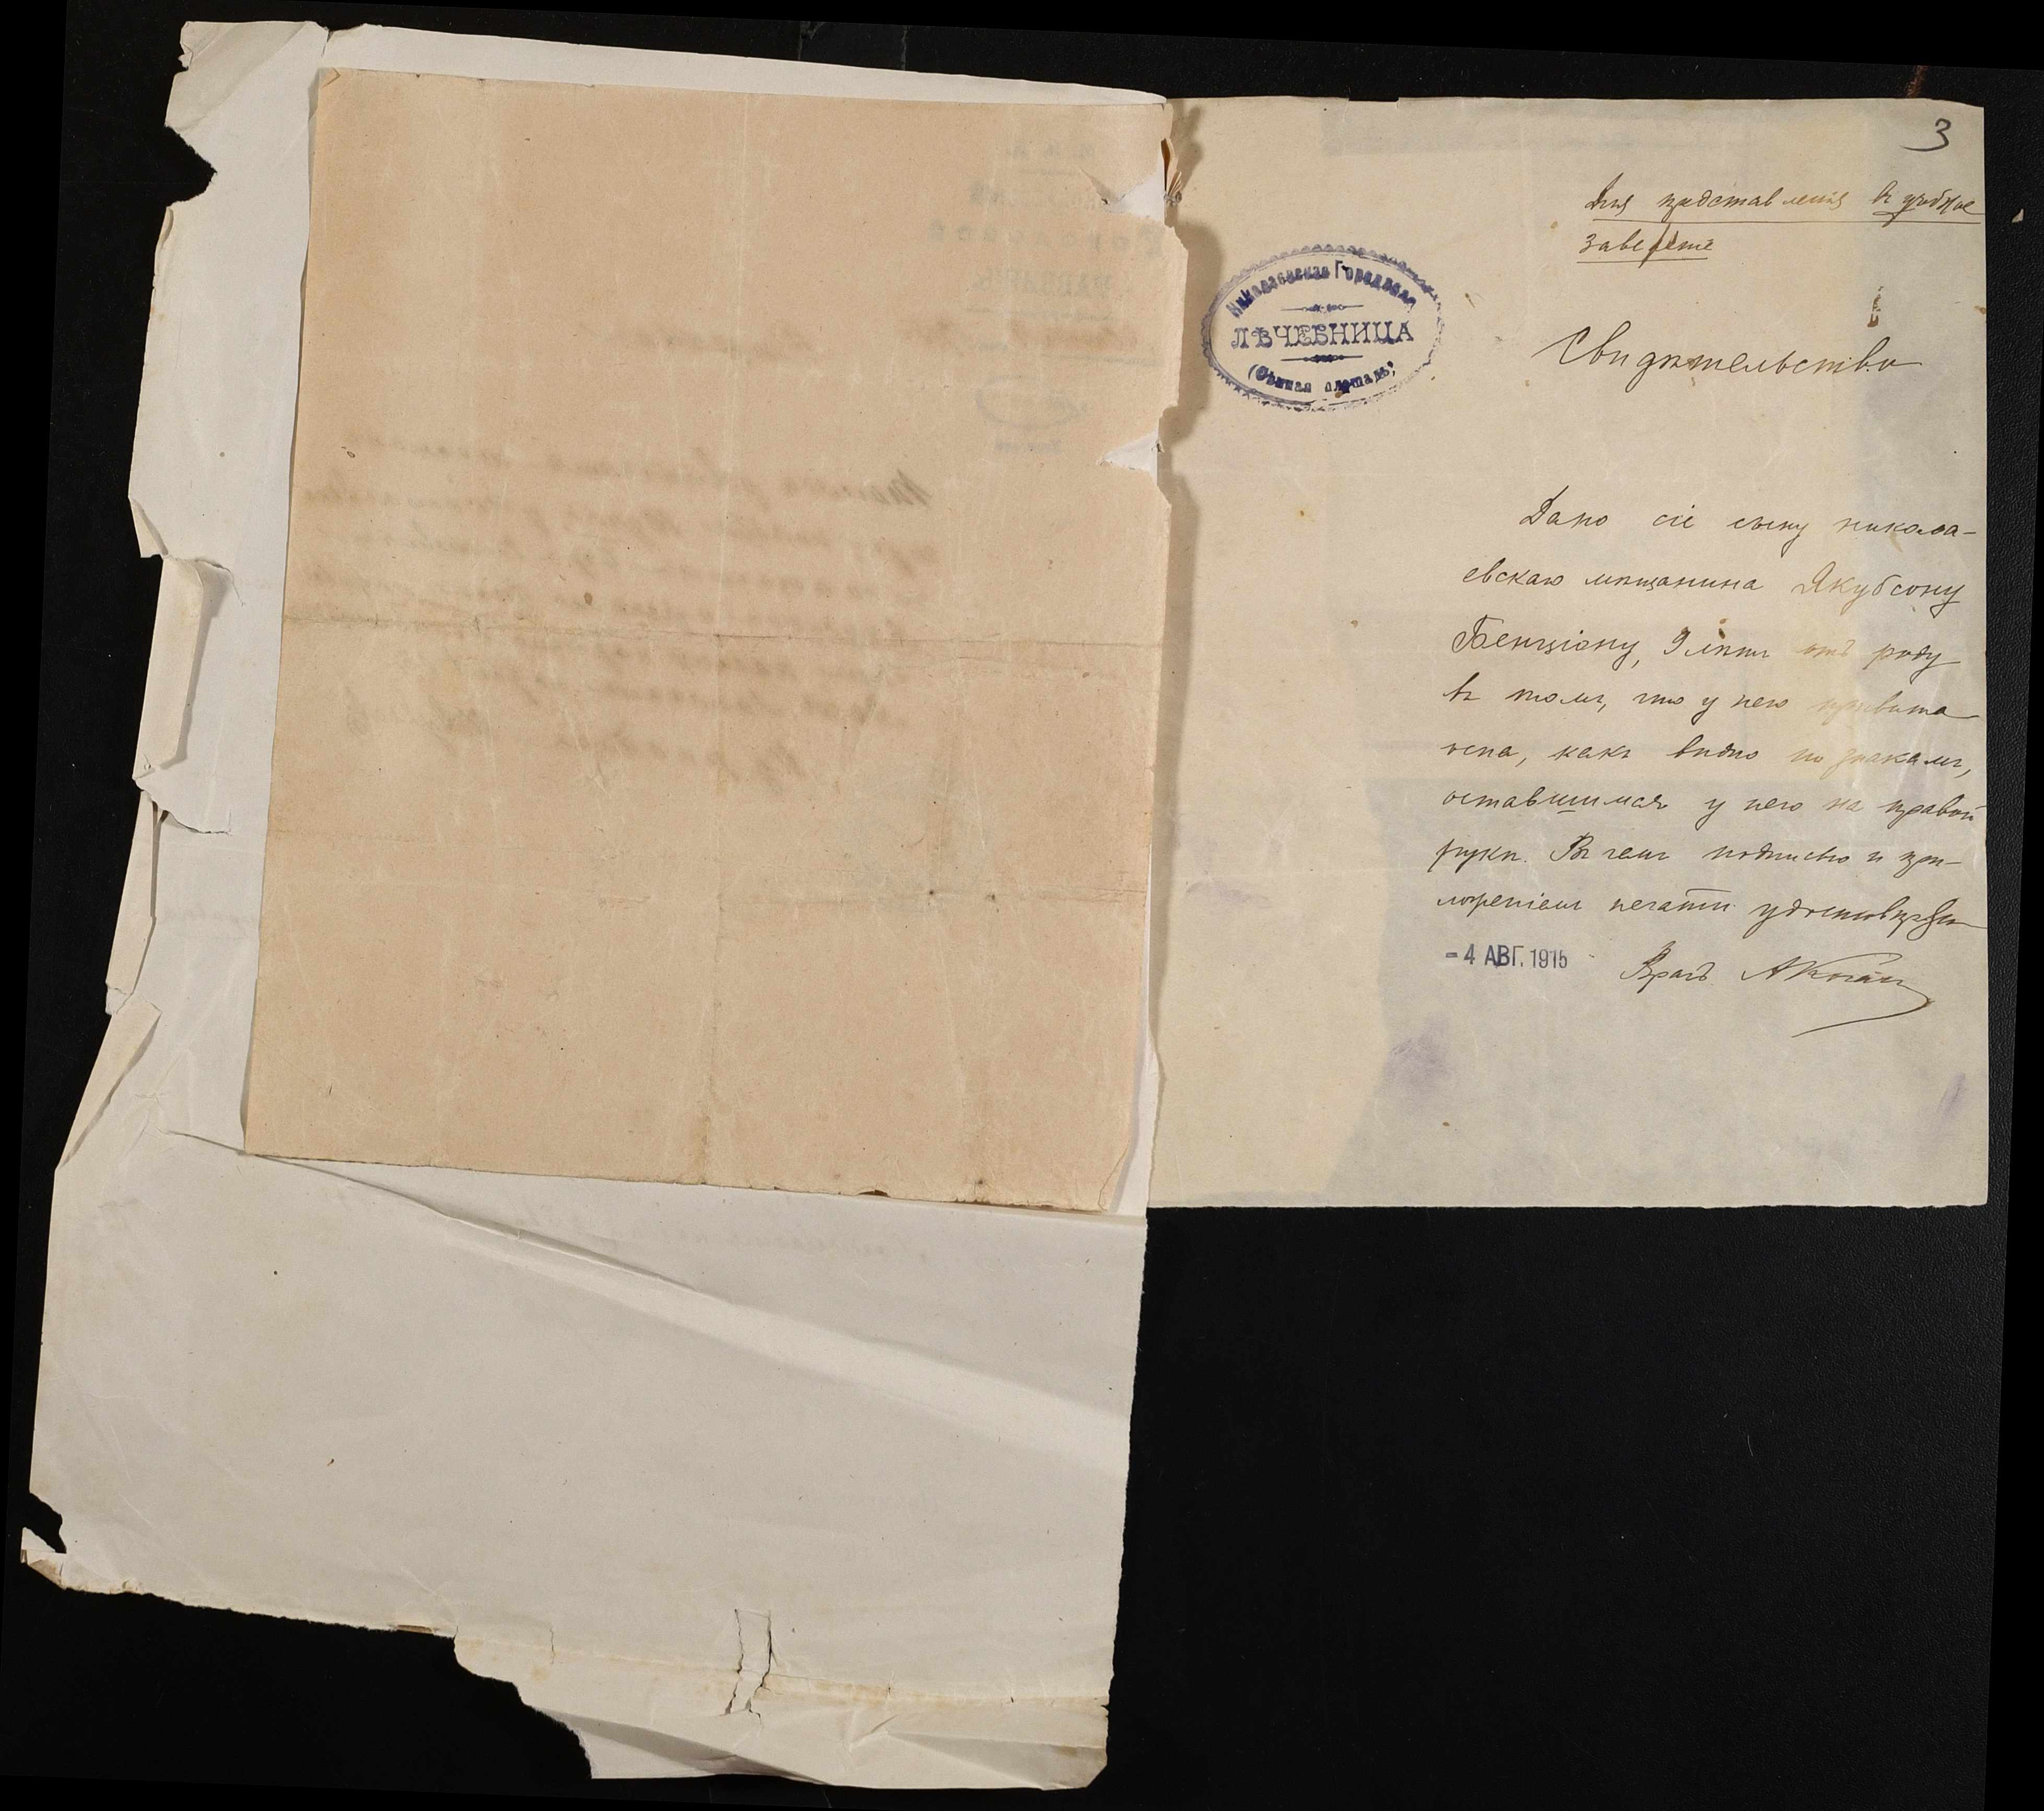 3
Для представленія въ учебное
заведеніе
Николаевская Городская
ЛѢЧЕБНИЦА
(Сѣнная площадь)
Свидѣтельство
Дано сіе сыну никола-
евскаго мѣщанина Якубсону
Бенціону, 9 лѣтъ отъ роду
въ томъ, что у него привита
оспа, какъ видно по знакамъ,
оставшимся у него на правой
рукѣ. Въ чемъ подписью и при-
ложеніемъ печати удостовѣряю
- 4 АВГ. 1915
Врачъ АКоганъ